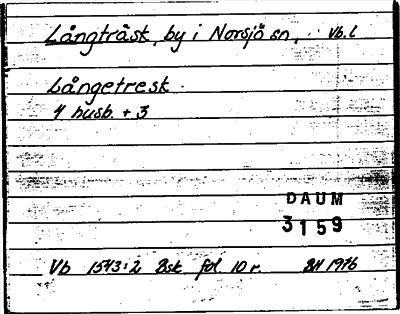 Långträsk, by i Norsjö sn. Vb.l
Långetresk
4 husb. + 3
DAUM
3159
Vb 1543:2 Bsk fol. 10 r. BH 1976